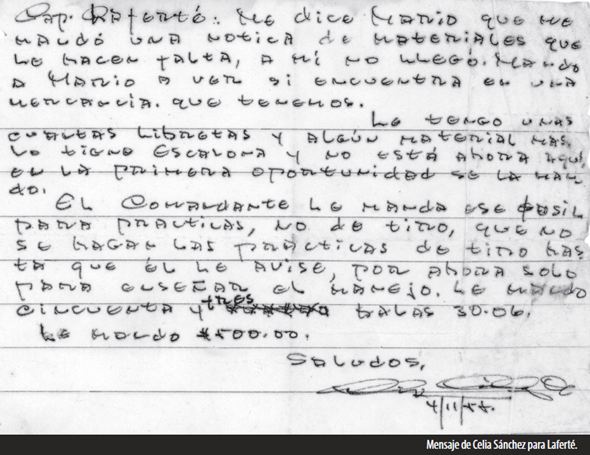 Cap. Laferté: Me dice Mario que me
mandó una notica de materiales que
le hacen falta, a mí no llegó. Mando
a Mario a ver si encuentra en una
mercancía. que tenemos.
Le tengo unas
cuantas libretas y algún material mas,
lo tiene Escalona y no está ahora aquí,
en la primera oportunidad se la man
do.
El Comandante le manda ese fusil
para practicas, no de tiro, que no
se hagan las prácticas de tiro has
ta que él le avise, por ahora solo
para enseñar el manejo. Le mando
cincuenta y tres balas 30.06.
Le mando $500.00.
Saludos,
4/11/58.
Mensaje de Celia Sánchez para Laferté.